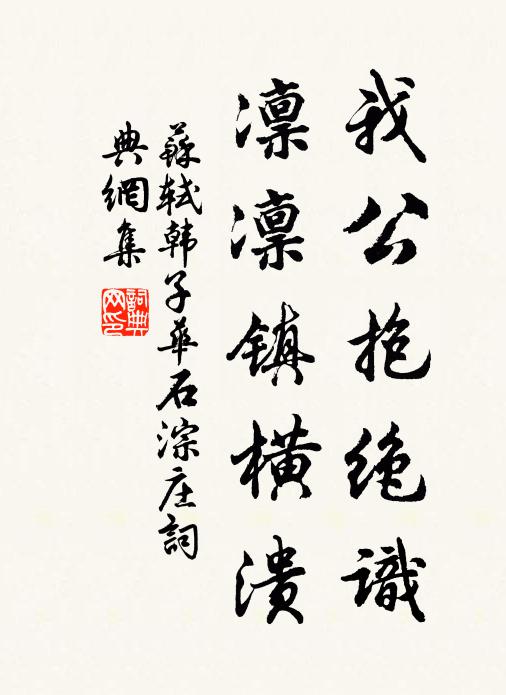 我公抱绝識
凛凛镇横潰
蘇轼韩子華石淙庄詞
典網集
詞典
网印